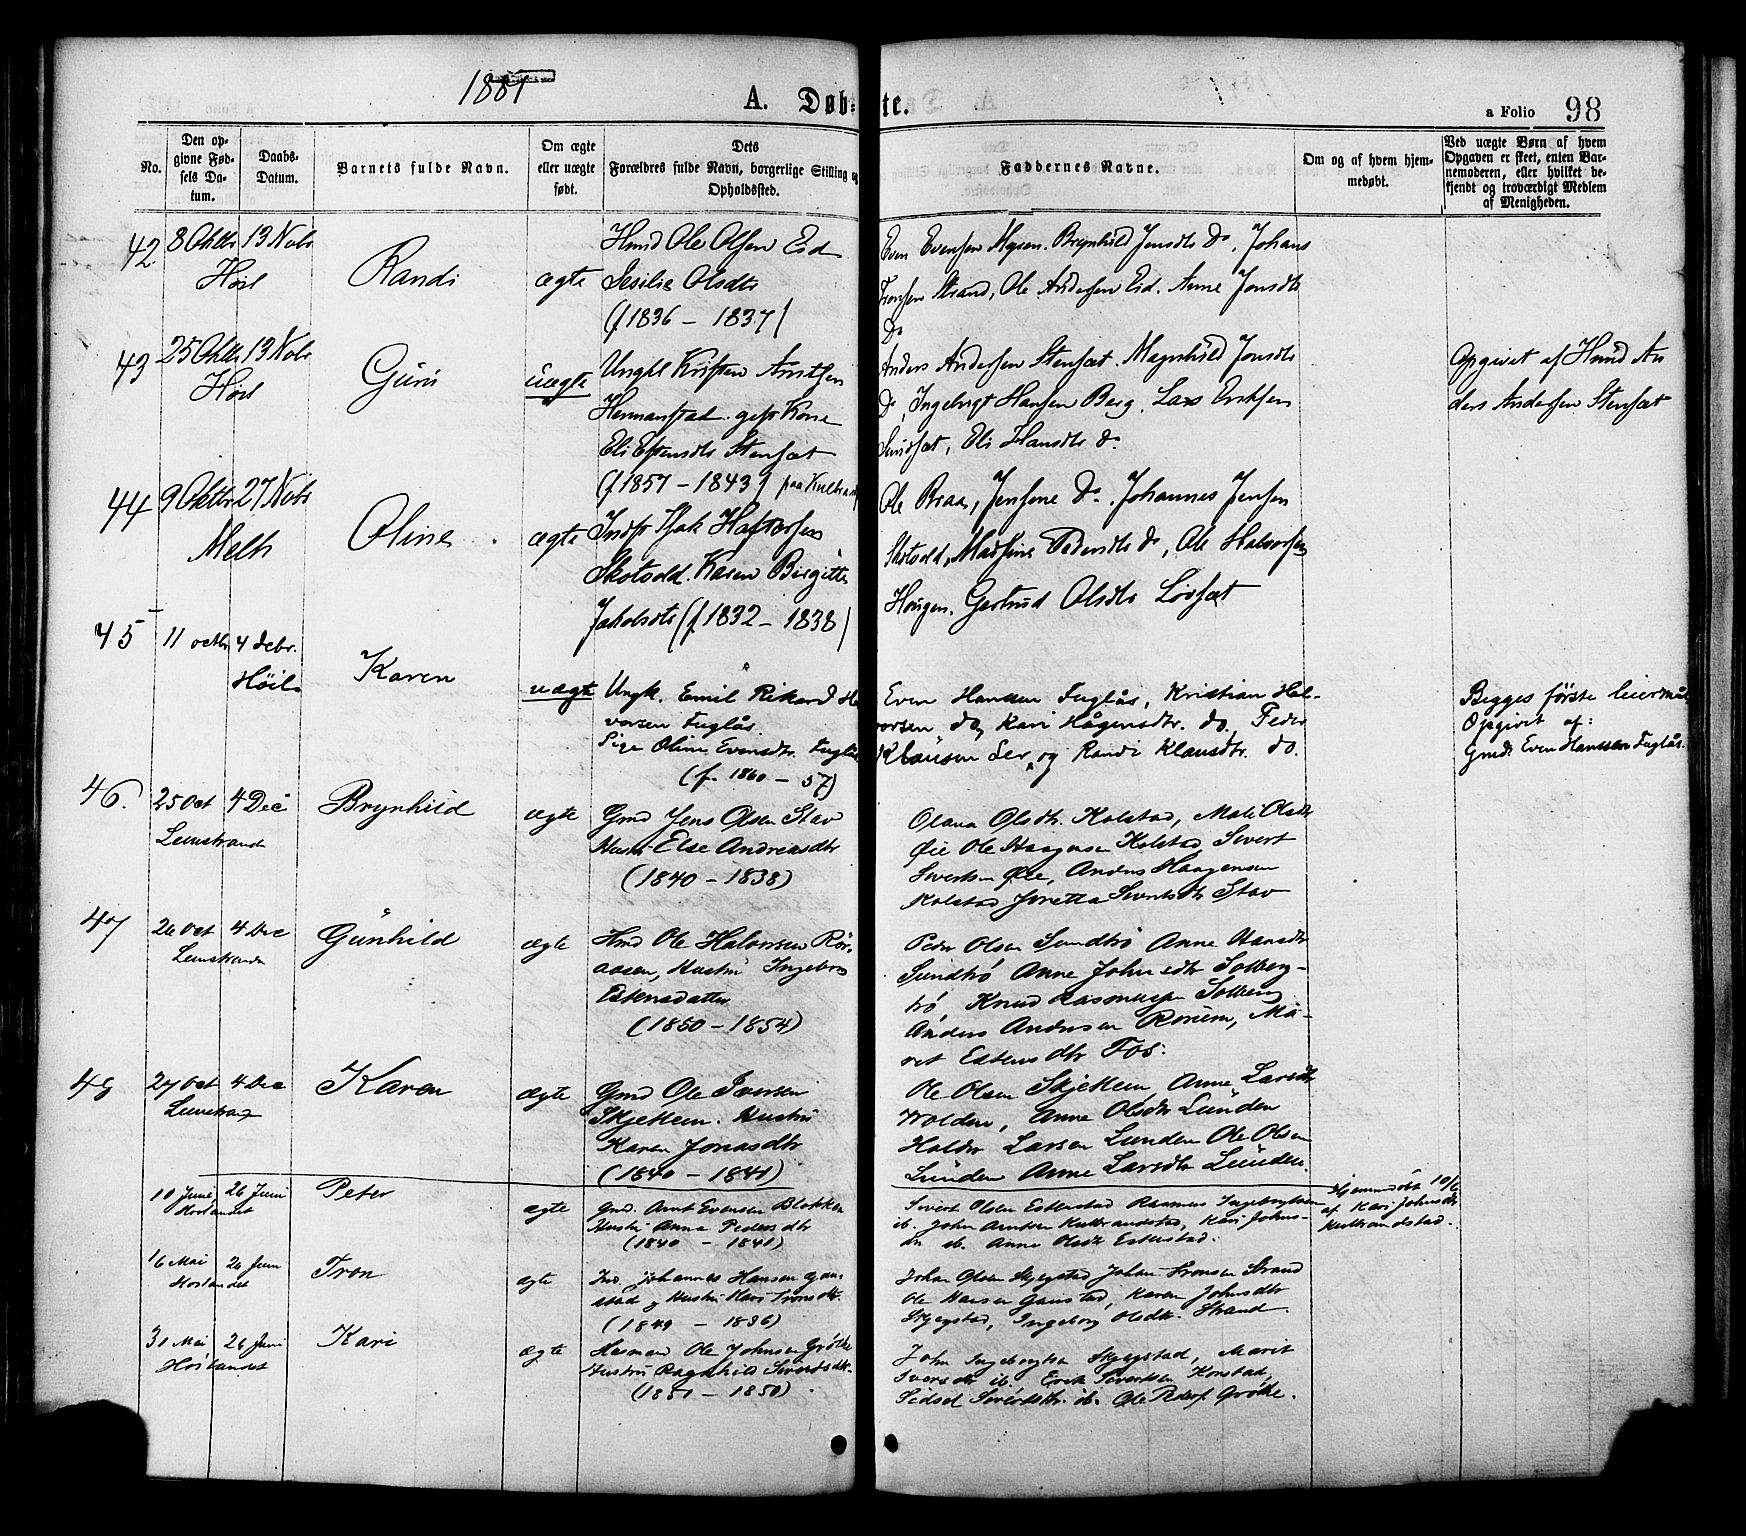 1881
A. Døb-te.
a Folio 98
No.
Den op-
givne Fød-
sels Da-
tum.
Daabs-
Datum.
Barnets fulde Navn.
Om ægte
eller uægte
født.
Dets
Forældres fulde Navn, borgerlige Stilling og
Opholdssted.
Faddernes Navne.
Om og af hvem hjem-
medøbt.
Ved uægte Børn af hvem
Opgaven er skeet, enten Bar-
nemoderen, eller hvilket be-
kjendt og troværdigt Medlem
af Menigheden.
42
8 Oktbr 13 Novbr
Høil
Randi
ægte
Husmd Ole Olsen Eid
Sesilie Olsdtr
(f 1836 - 1837)
Even Evensen Mosen. Brynhild Jensdtr Do, Johans
Tronsen Strand, Ole Andersen Eid. Anne Jonsdtr
Do
43
25 Oktbr 13 Novbr
Høil
Guri
uægte
Ungkl Kristen Arntsen
Hermanstad. gift Kone
Eli Estensdtr Stensæt
(f 1857 - 1843)
Anders Andersen Stensæt. Magnhild Jonsdtr
Do, Ingebrigt Hansen Berg, Lars Eriksen
Sundsæt, Eli Hansdtr do
Opgivet af Husmd An
ders Andersen Stensæt
44
9 Oktbr 27 Novbr
Melh
Oline
ægte
Indst Isak Haftorsen
Skotvold. Karen Birgitte
Jakobsdtr (f 1832 - 1838)
Ole Braa, Jensine Do. Johannes Jensen
Skotvold, Madsine Pedersdtr do, Ole Halvorsen
Haugen. Gertrud Olsdtr Løvsæt
45
11 octbr 4 debr.
Høil
Karen
uægte
Ungk. Emil Rikard Ha
vorsen Fuglås.
Pige Oline Evensdtr. Fuglås
(f. 1860 - 57)
Even Hansen Fuglås, Kristian Hal-
vorsen do, Kari Hågensdtr. do. Peder
Klausen Ler, og Randi Klausdtr. do.
Begges første leiermål
Opgivet af:
Gmd. Even Hanssen Fuglås.
46.
25 Oct 4 Dec
Leinstrand
Brynhild
ægte
Gmd Jens Olsen Stav
Hustr. Else Andreasdtr
(1840 - 1838)
Olava Olsdtr. Kolstad, Mali Olsdtr
Øie Ole Haagensen Kolstad, Sivert
Sivertsen Øie, Anders Haagensen
Kolstad Joretta Sivertsdtr Stav
47
26 Oct 4 Dec
Leinstranden
Gunhild
ægte
Hmd Ole Halvorsen Rør-
aasen, Hustru Ingebor
Estensdatter
(1850 - 1854)
Peder Olsen Sundtrø Anne Hansdtr
Sundtrø Anne Johnsdtr Solberg-
trø, Knud Rasmussen Solberg
Anders Andersen Rorum, Ma-
rit Estensdtr Fos.
48
27 Oct 4 Dec
Leinstra
Karen
ægte
Gmd Ole Iversen
Skjetlein. Hustru
Karen Jonasdtr
(1840 - 1841)
Ole Olsen Skjetlein, Anne Larsdtr
Volden, Anne Olsdtr Lunden
Haldor Larsen Lunden Ole Olsen
Lunden Anne Larsdtr Lunden.
10 June, 26 Juni
Horlandet
Peter
ægte
Gmd. Arnt Evensen Blokken
Hustru Anna Pedersdtr
(1840 - 1841)
Sivert Olsen Estenstad Rasmus Ingebrigtsen
ib. John Arntsen Kulbrandstad, Kari Johns-
dtr ib. Anne Olsdtr Estenstad.
Hjemmedøbt 10/6
af Kari Johnsdtr
Kulbrandstad.
16 Mai 26 Juni
Horlandet
Tron
ægte
Ind. Johannes Hansen Gau-
stad og Hustru Kari Tronsdtr.
(1849 - 1836)
Johan Olsen Skjegstad Johan Tronsen Strand
Ole Hansen Gaustad, Karen Johnsdtr
Skjegstad, Ingeborg Olsdtr. Strand.
31 Mai 26 Juni
Horlandet
Kari
ægte
Husmand Ole Johnsen Grøtte
Hustru Ragnhild Sivertsdtr.
(1851 - 1850)
John Ingebrigtsen Skjegstad, Marit
Iversdtr ib. Erik Sivertsen Kjonstad,
Sidsel Sivertsdtr. ib. Ole Peders. Grøtte.